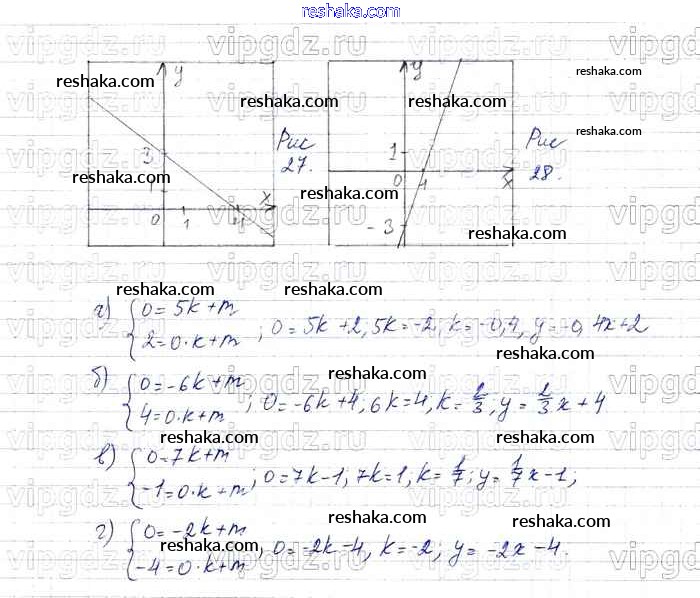 reshaka.com
vipgdz.ru vipgdz.ru vipgdz.ru vipgdz
y y
reshaka.com reshaka.com
reshaka.com reshaka.com
3 Рис 27.
1 Рис 28.
reshaka.com
x 0 1 x
reshaka.com
0 1 4
-3
reshaka.com
reshaka.com reshaka.com
а) { 0=5k+m
2=0·k+m ; 0=5k+2, 5k=-2, k=-0,4, y=-0,4x+2
reshaka.com
reshaka.com
б) { 0=-6k+m
4=0·k+m ; 0=-6k+4, 6k=4, k=2/3; y=2/3x+4
reshaka.com reshaka.com
в) { 0=7k+m
-1=0·k+m ; 0=7k-1; 7k=1, k=1/7; y=1/7x-1;
reshaka.com
reshaka.com reshaka.com
г) { 0=-2k+m
-4=0·k+m ; 0=-2k-4, k=-2; y=-2x-4.
reshaka.com reshaka.com